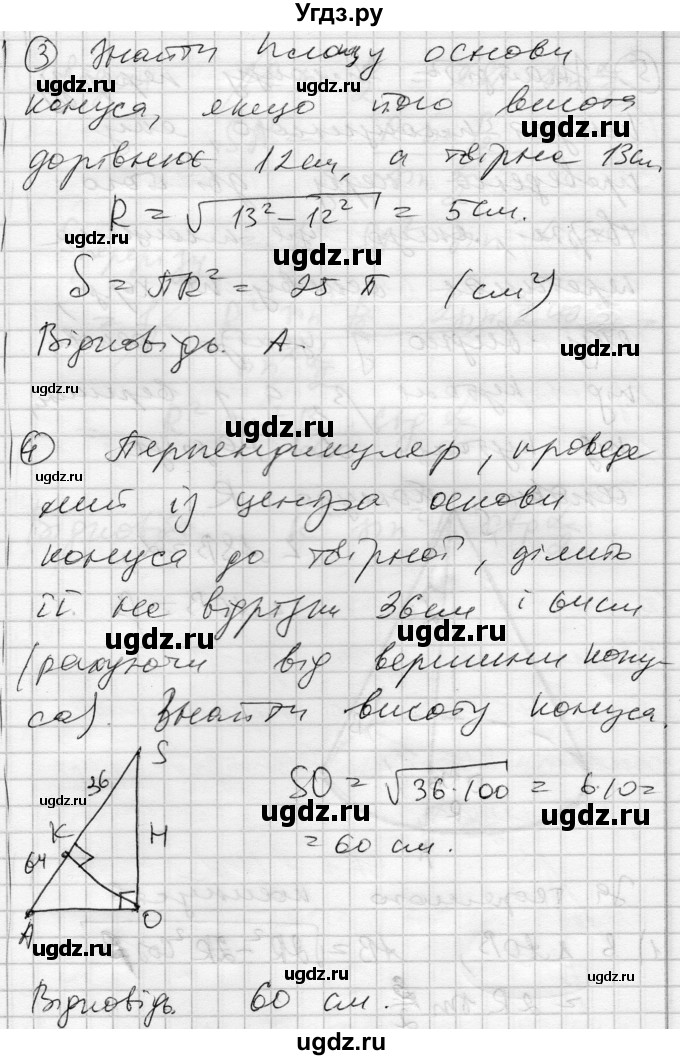 Угдз.ру
③ Знайти площу основи
ugdz.ru
конуса, якщо його висота
ugdz.ru
дорівнює 12см, а твірна 13см.
R = √13² − 12² = 5см.
ugdz.ru
ugdz.ru
S = ПR² = 25 П (см²)
Відповідь. А.
ugdz.ru
ugdz.ru
ugdz.ru
④ Перпендикуляр, проведе
ugdz.ru
ний із центра основи
конуса до твірної, ділить
ugdz.ru
її на відрізки 36см і 64см
ugdz.ru
ugdz.ru
(рахуючи від вершини кону-
са). Знайти висоту конуса.
S
36
SO = √36·100 = 6·10 =
ugdz.ru
ugdz.ru
ugdz.ru
K
H
= 60 см.
64
A
O
ugdz.ru
ugdz.ru
Відповідь. 60 см.
ugdz.ru
ugdz.ru